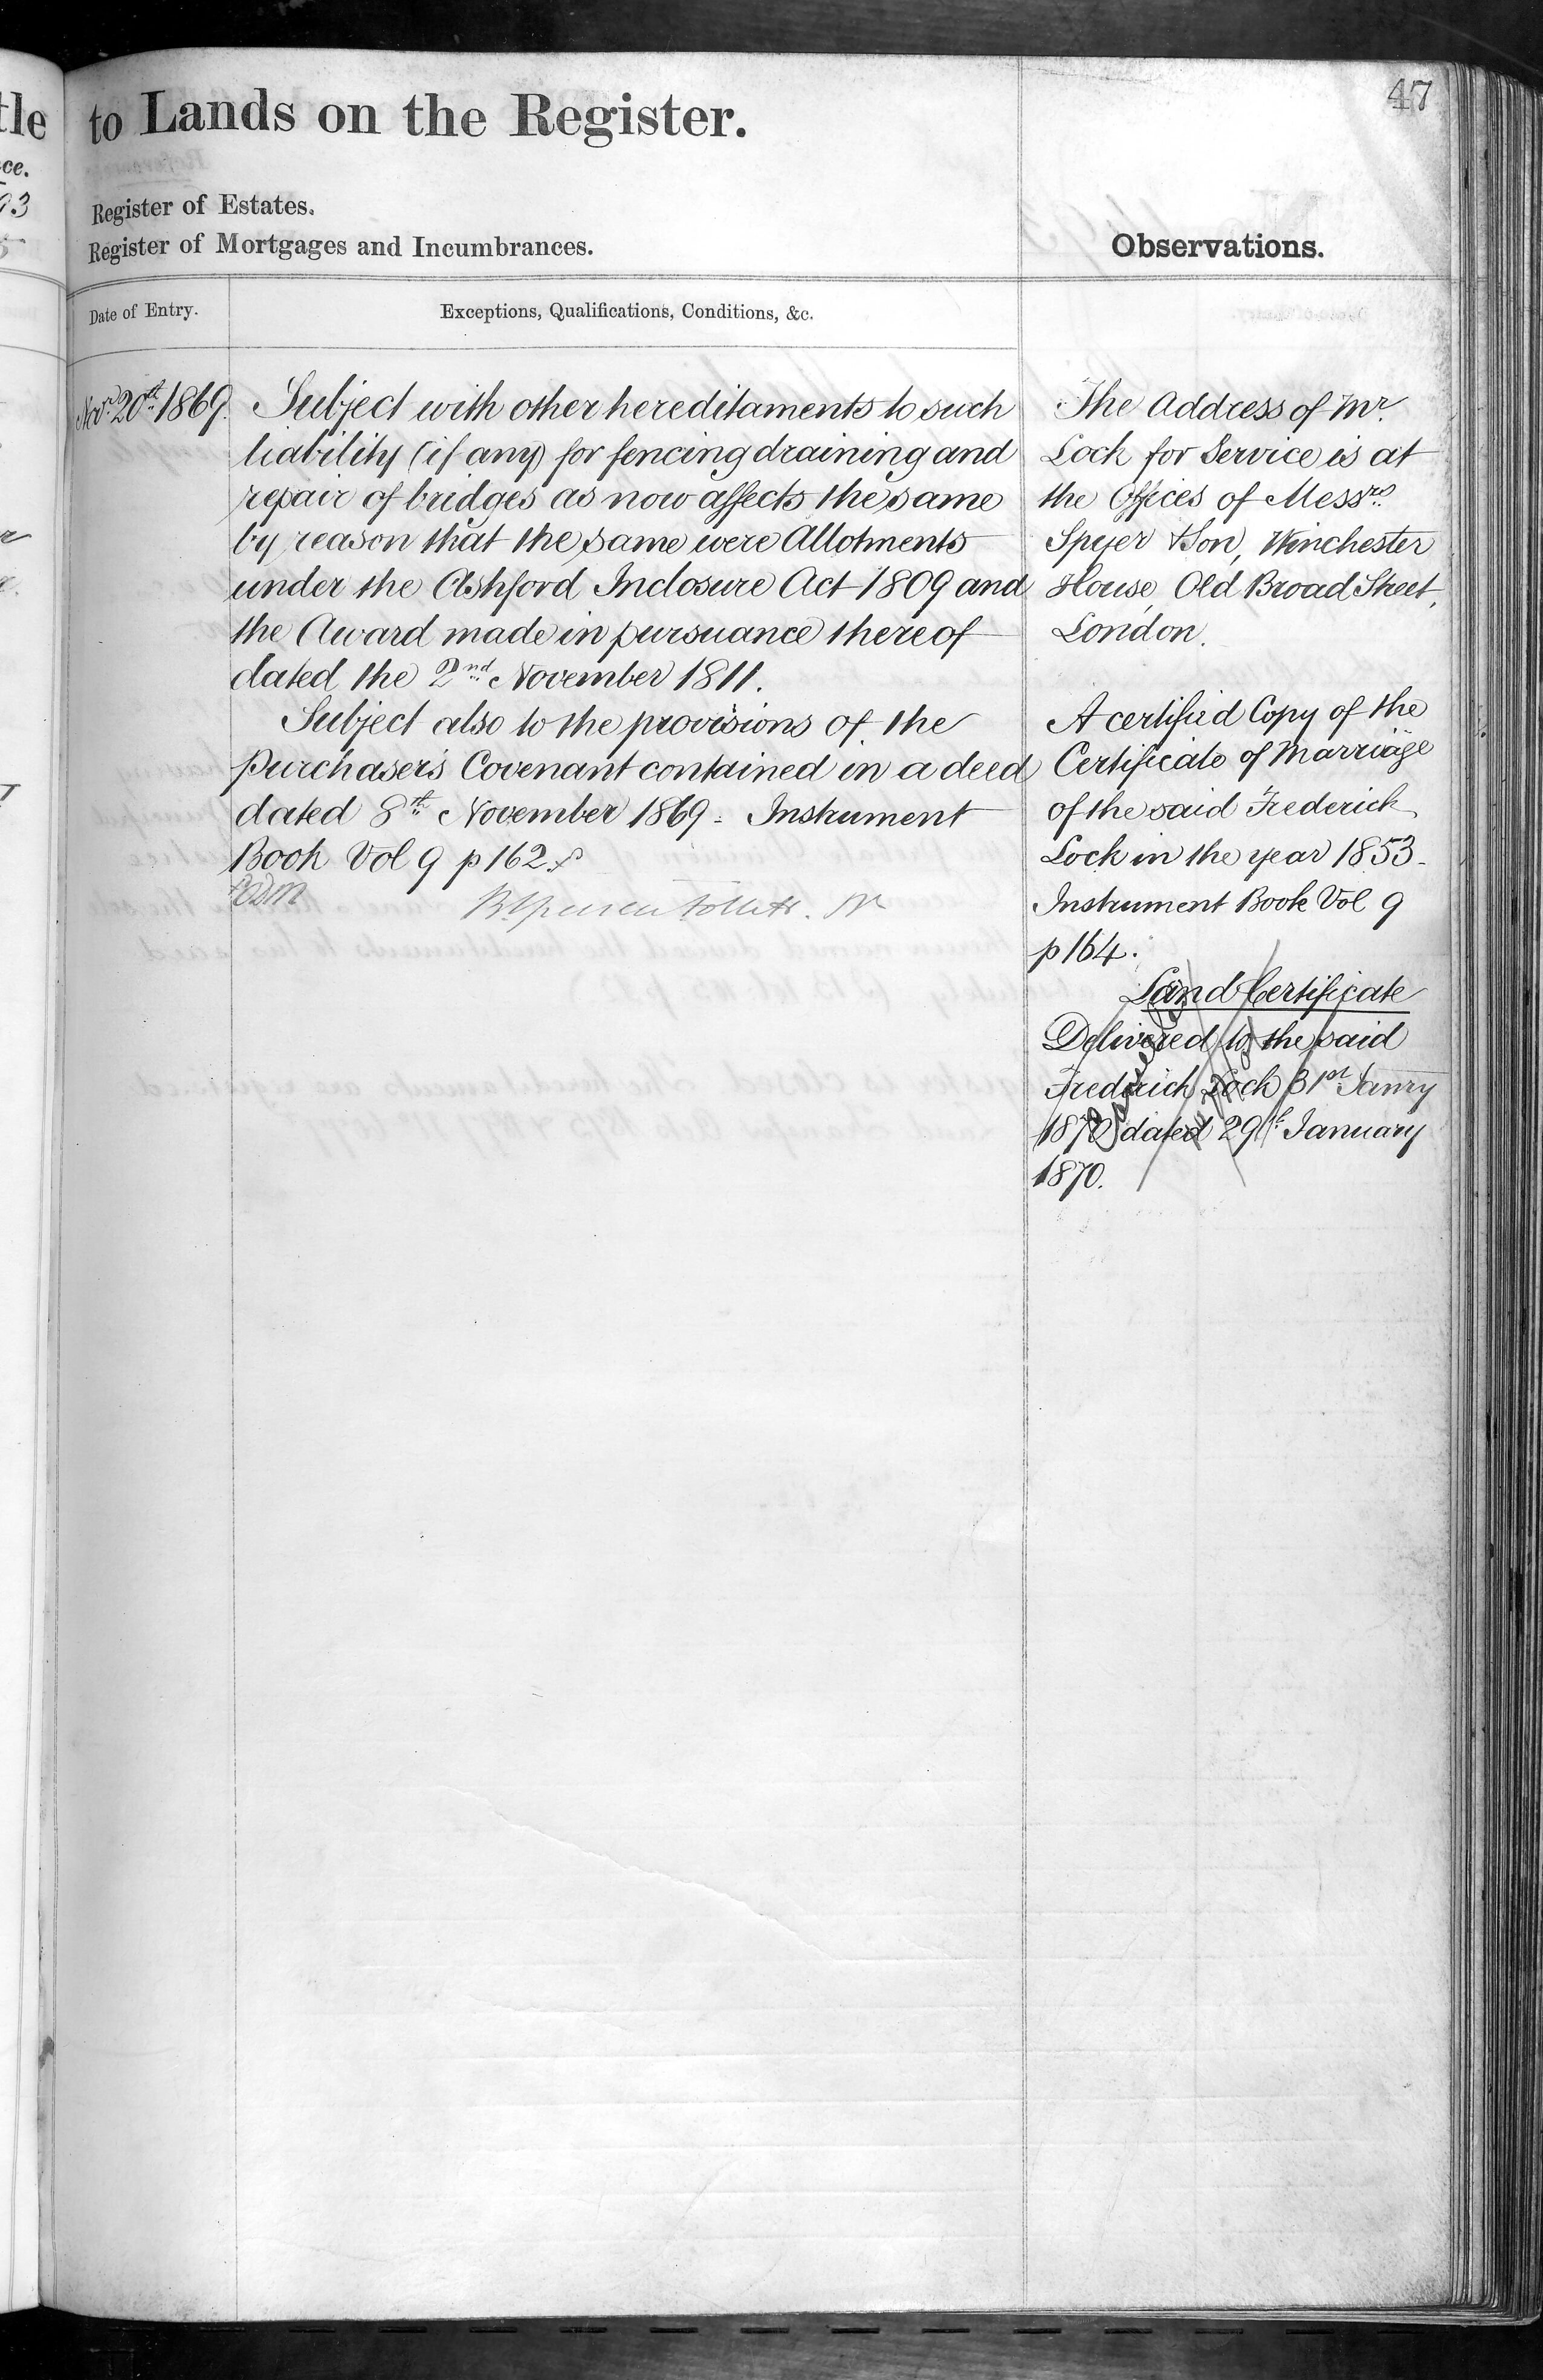 47
tle to Lands on the Register.
ce.
93
Register of Estates.
Register of Mortgages and Incumbrances.
Observations.
Date of Entry.
Exceptions, Qualifications, Conditions, &c.
Novr. 20th 1869.
Subject with other hereditaments to such
liability (if any) for fencing draining and
repair of bridges as now affects the same
by reason that the same were Allotments
under the Ashford Inclosure Act 1809 and
the Award made in pursuance thereof
dated the 2nd November 1811.
Subject also to the provisions of the
Purchaser's Covenant contained in a deed
dated 8th November 1869 - Instrument
Book Vol 9 p 162.
The Address of Mr.
Lock for Service is at
the Offices of Messrs.
Spyer & Son, Winchester
House, Old Broad Street,
London.
A certified Copy of the
Certificate of Marriage
of the said Frederick
Lock in the year 1853 -
Instrument Book Vol 9
p 164.
Land Certificate
Delivered to the said
Frederick Lock 31st Janry
1870 dated 29th January
1870.